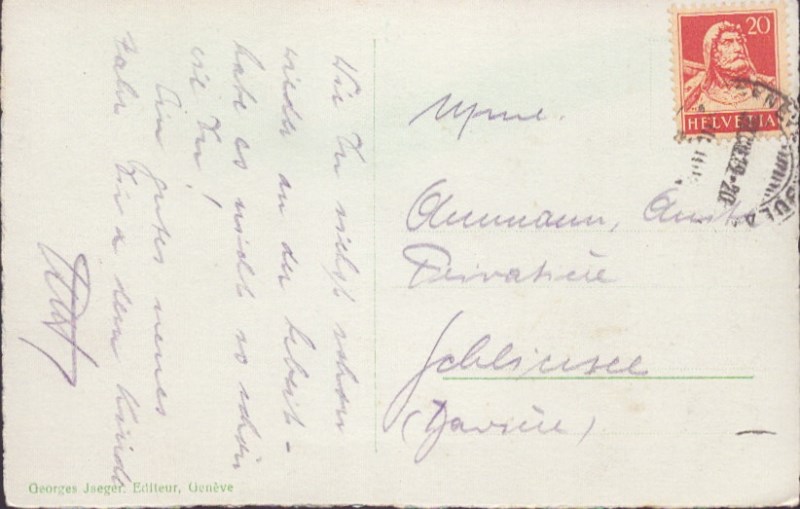 Wie Du siehst schon
wieder an der Arbeit -
habe es nicht so schön
wie Du!
Ein gutes neues
Jahr Dir u dem Kinde
Mme.
Ammann,
Privatiere
Schliersee
(Bavière)
20
HELVETIA
Georges Jaeger. Editeur, Genève